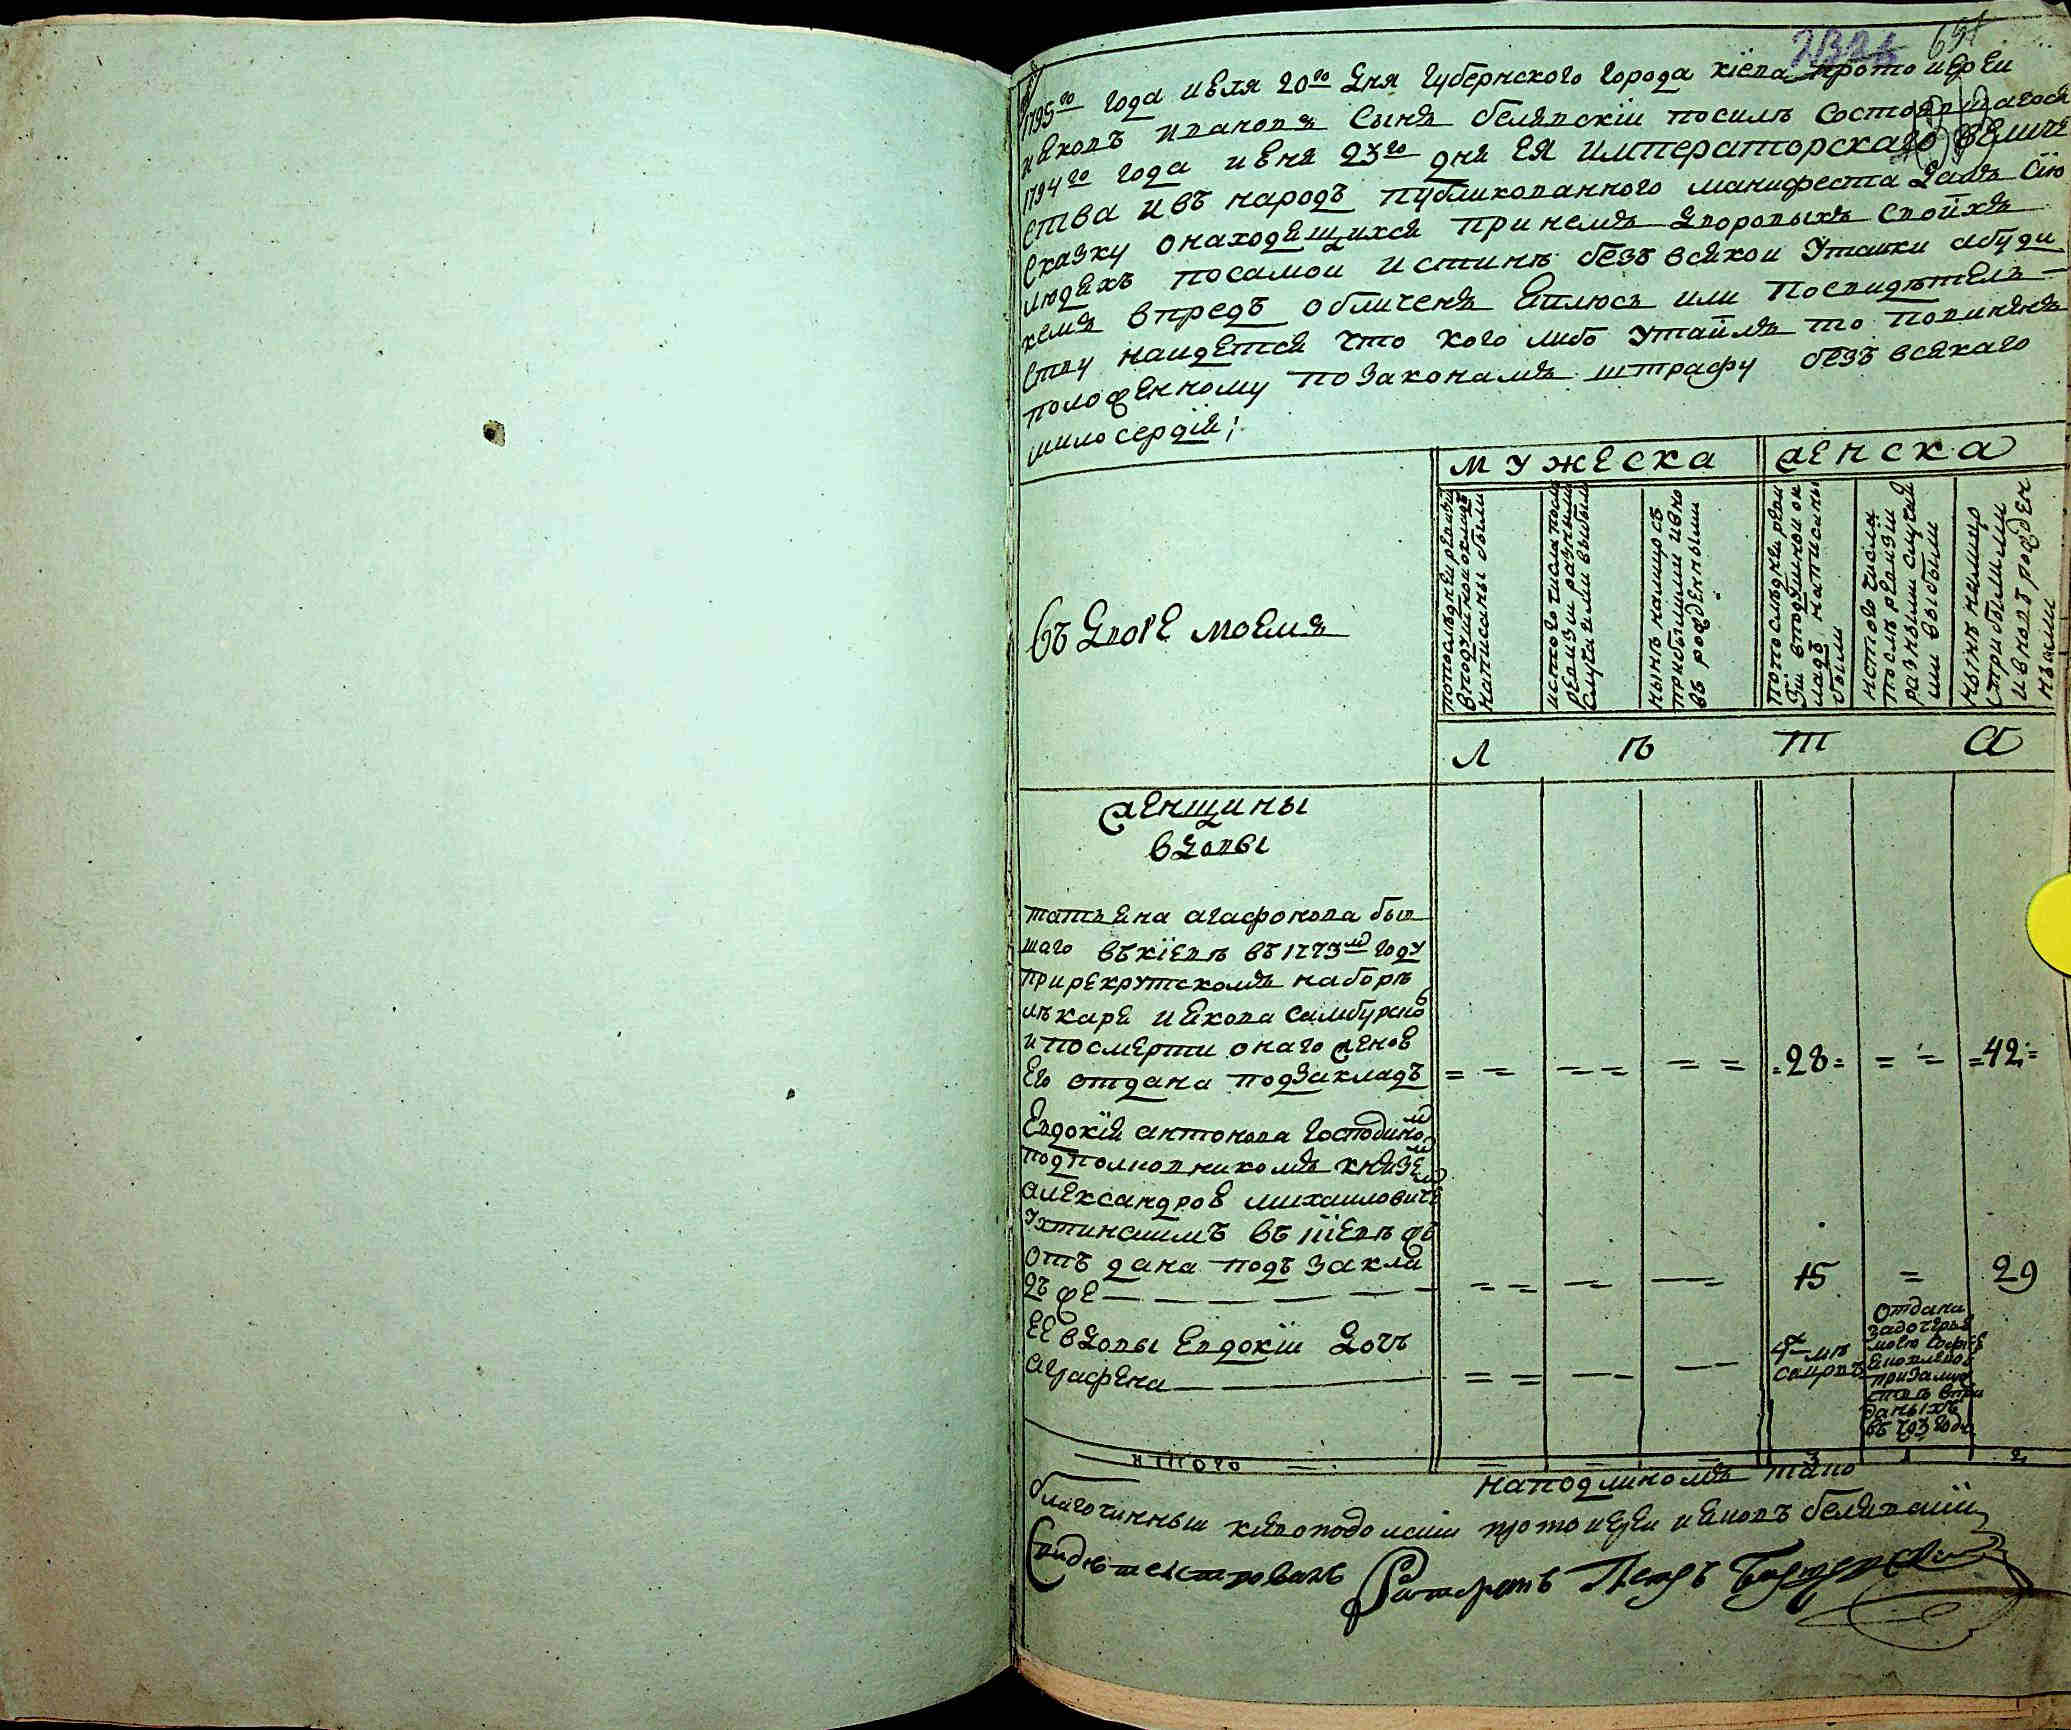 1795го года июля 20го дня губернского города Кіева протоиерей
Ияковъ Ивановъ сынъ Белявскій посилѣ состоявшагося
1794го года июня 23го дня ЕЯ Императорскаго Величе
ства и въ народъ публикованного манифеста далъ сію
сказку онаходящихся принемъ дворовыхъ своихъ
людяхъ посамой истинѣ безъ всякой утайки абуди
кемъ впредь обличенъ явлюсь или посвидѣтель
ству найдется что кого либо утаилъ то повиненъ
положенному позаконамъ штрафу безъ всякаго
милосердія;
Мужеска Женска
въ дворѣ моемъ
попоследней ревизіи
вподушной окладъ
написаны были
истого числа после
ревизіи разными
случаями выбыли
нынѣ налицо съ
прибылыми ивно
въ рожденными
попоследней реви
зіи вподушной ок
ладъ написаны
были
истого числа
послѣ ревизіи
разными случая
ми выбыли
нынѣ налицо
съприбылими
ивновъ рожден
ными
Л ѣ т а
женщины
вдовы
татьяна агафонова быв
шаго въ кіевѣ въ 1773мъ году
при рекрутскомъ наборѣ
лѣкаря Иякова
и посмерти онаго женою
Его отдана подзакладъ = = = = = = =28= = = =42=
Евдокія антонова господиномъ
подполковникомъ княземъ
александромъ михайловичемъ
въ кіевѣ жъ
отъ дана подъ закла
дъ же — — — — — 15 = 29
ЕЕ вдовы Евдокіи дочь
аграфена 4хъ лѣтъ
отдана
задочерью
моею
при замуж
ствѣ впри
данныхъ
въ 793 году
итого = = = = 3 1 2
наподлиномъ тако
благочинный кіевоподолскій протоиерей Ияковъ белявскій
Свидетелствовалъ Петръ